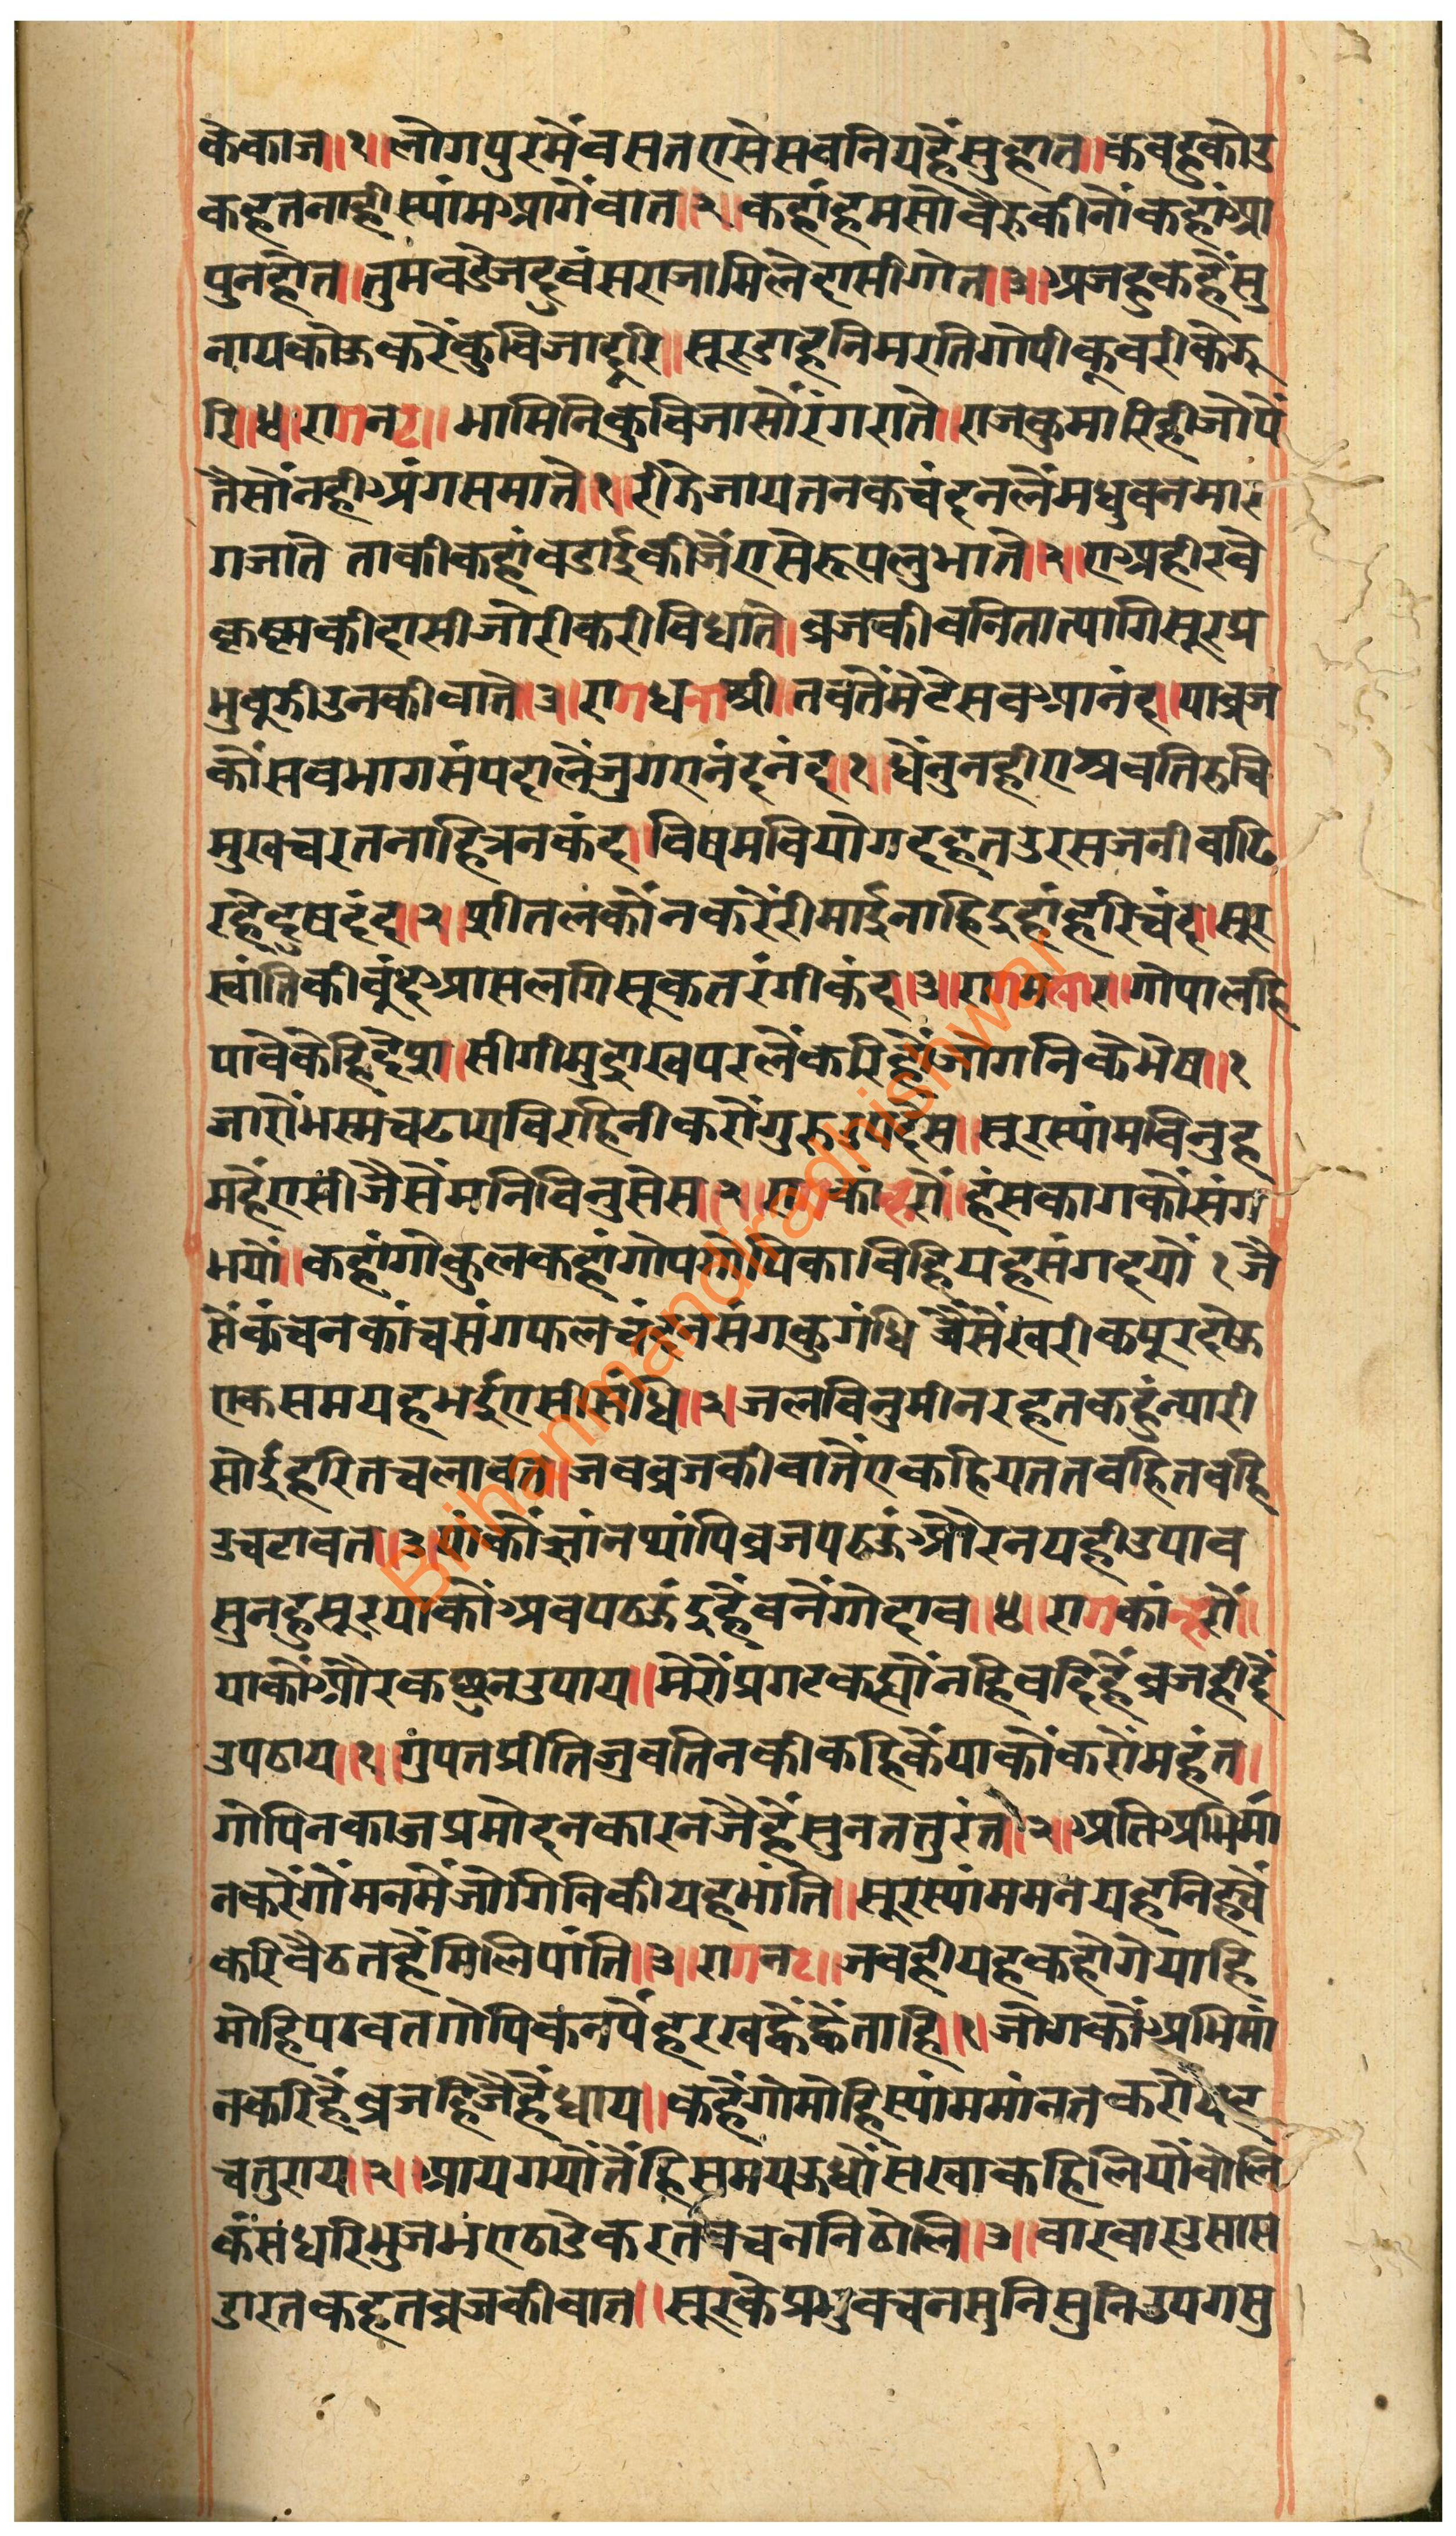 केकाज॥१॥लोगपुरमैंवसतएसेसबनियहैंसुहात॥कबहुकोउ
कहतनाहीस्यांमआगेंवात॥२॥कहांहमसौंवैरुकीनौंकहांआ
पुनहोत॥तुमवडेजदुवंसराजामिलेदासीगोत॥३॥अजहुकहैंसु
नायकोऊकरेंकुविजादूरि॥सूरडाहनिमरतिगोपीकूवरीकेझू
रि॥४॥रागनट॥भामिनिकुविजासौंरंगराते॥राजकुमारिहीजोपें
तैसौंनहीअंगसमाते॥१॥रीझेजायतनकचंदनलैंमधुवनमार
गजाते ताकीकहांवडाईकीजैंएसेरूपलुभाते॥२॥एअहीरवे
कृष्मकीदासीजोरीकरीविधाते॥व्रजकीवनितात्यागिसूरप्र
भुवुझीउनकीवाते॥३॥रागधनाश्री॥तवतेंमेटेसवआनंद॥याव्रज
कौंसवभागसंपदालैंजुगएनंदनंद॥१॥धैंनुनहीएश्रवतिरुचि
मुखचरतनाहित्रनकंद॥विषमवियोगदहतउरसजनीवाढि
रहेदुषदंद॥२॥शीतलकौंनकरैंरीमाईनाहिइहांहरिचंद॥सूर
स्वांतिकीवुंदआसलगिसूकतरंगीकंद॥३॥रागमलार॥गोपालहि
पावेंकेहिदेश॥सीगीमुद्राखपरलैंकरिहौंजोगनिकेभेष॥१
जारौंभस्मंचढायविरहिनीकरौंगुरुउपदेस॥सूरस्यांमविनुह
महैंएसीजैसैंमनिविनुसेस॥२॥रागकांन्हरौ॥हंसकागकौसंग
भयौ॥कहांगोकुलकहांगोपगोपिकाविहियहसंगदयौं १ जै
सैंकंचनकांचसंगफलचंदनसंगकुगंधि वैंसैंखरीकपूरदोऊ
एकसमयहभईएसीसंधि॥२॥जलविनुमीनरहतकहुंन्यारी
सोईहरितचलावत॥जवव्रजकीवातेंएकहियततवहितवहि
उचटावत॥३॥यांकौंज्ञांनथ्यांपिव्रजपठऊंऔरनयहीउपाव
सुनहुसूरयाकौंअवपठऊंइहैंवनैंगोदाव॥४॥रागकांन्हरौं॥
याकौंऔरकछुनउपाय॥मेरौंप्रगटकह्यौंनहिवदिहैंव्रजहीदैं
उपठाय॥१॥गुंपतप्रीतिजुवतिनकीकहिकैंयाकौंकरौंमहंत॥
गोपिनकाजप्रमोदनकारनजैहैंसुनततुरंत॥२॥अतिअभिमां
नकरेंगोंमनमैंजोगिनिकीयहभांति॥सूरस्यांममनयहनिह्चैं
करिवैठतहैंमिलिपांति॥३॥रागनट॥जवहीयहकहोगेयाहि
मोहिपठवतगोपिकनपैंहरखव्हैंव्हैंताहि॥१॥जोगकौंअभिमां
नकरिहैंव्रजहिजैहैंधाय॥कहैंगोमोहिस्यांममांनतकरौंयह
चतुराय॥२॥आयगयौंतैंहिसमयऊधौंसखाकहिलियौंवोलि
कंसंधरिभुजभंएठाडेकरतवचननिठोलि॥३॥वारवारउसास
डारतकहतव्रजकीवात॥सूरकेप्रभुवचनसुनिसुनिउपगसु